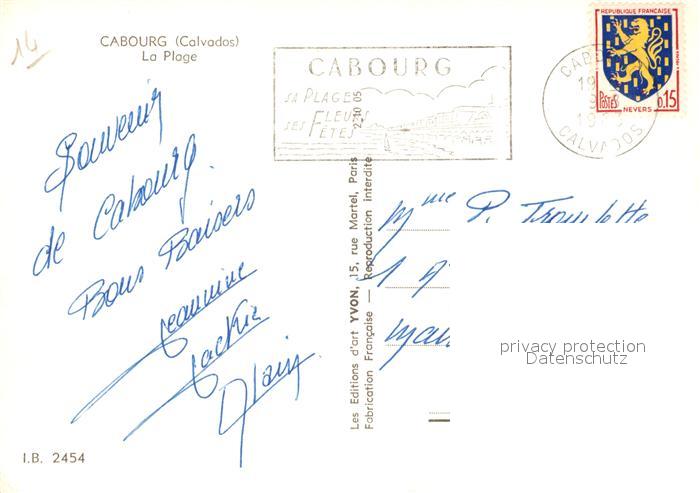 16
CABOURG (Calvados)
La Plage
Souvenir
de Cabourg.
Bons Baisers
Jeannine
Jackie
Alain
I.B. 2454
Les Editions d'art YVON, 15, rue Martel, Paris
Fabrication Française — Reproduction interdite
22 10 05
CABOURG
SA PLAGE
SES FLEURS
SES FÊTES
CALVADOS
REPUBLIQUE FRANÇAISE
POSTES 0,15
NEVERS
Mme P.
privacy protection
Datenschutz